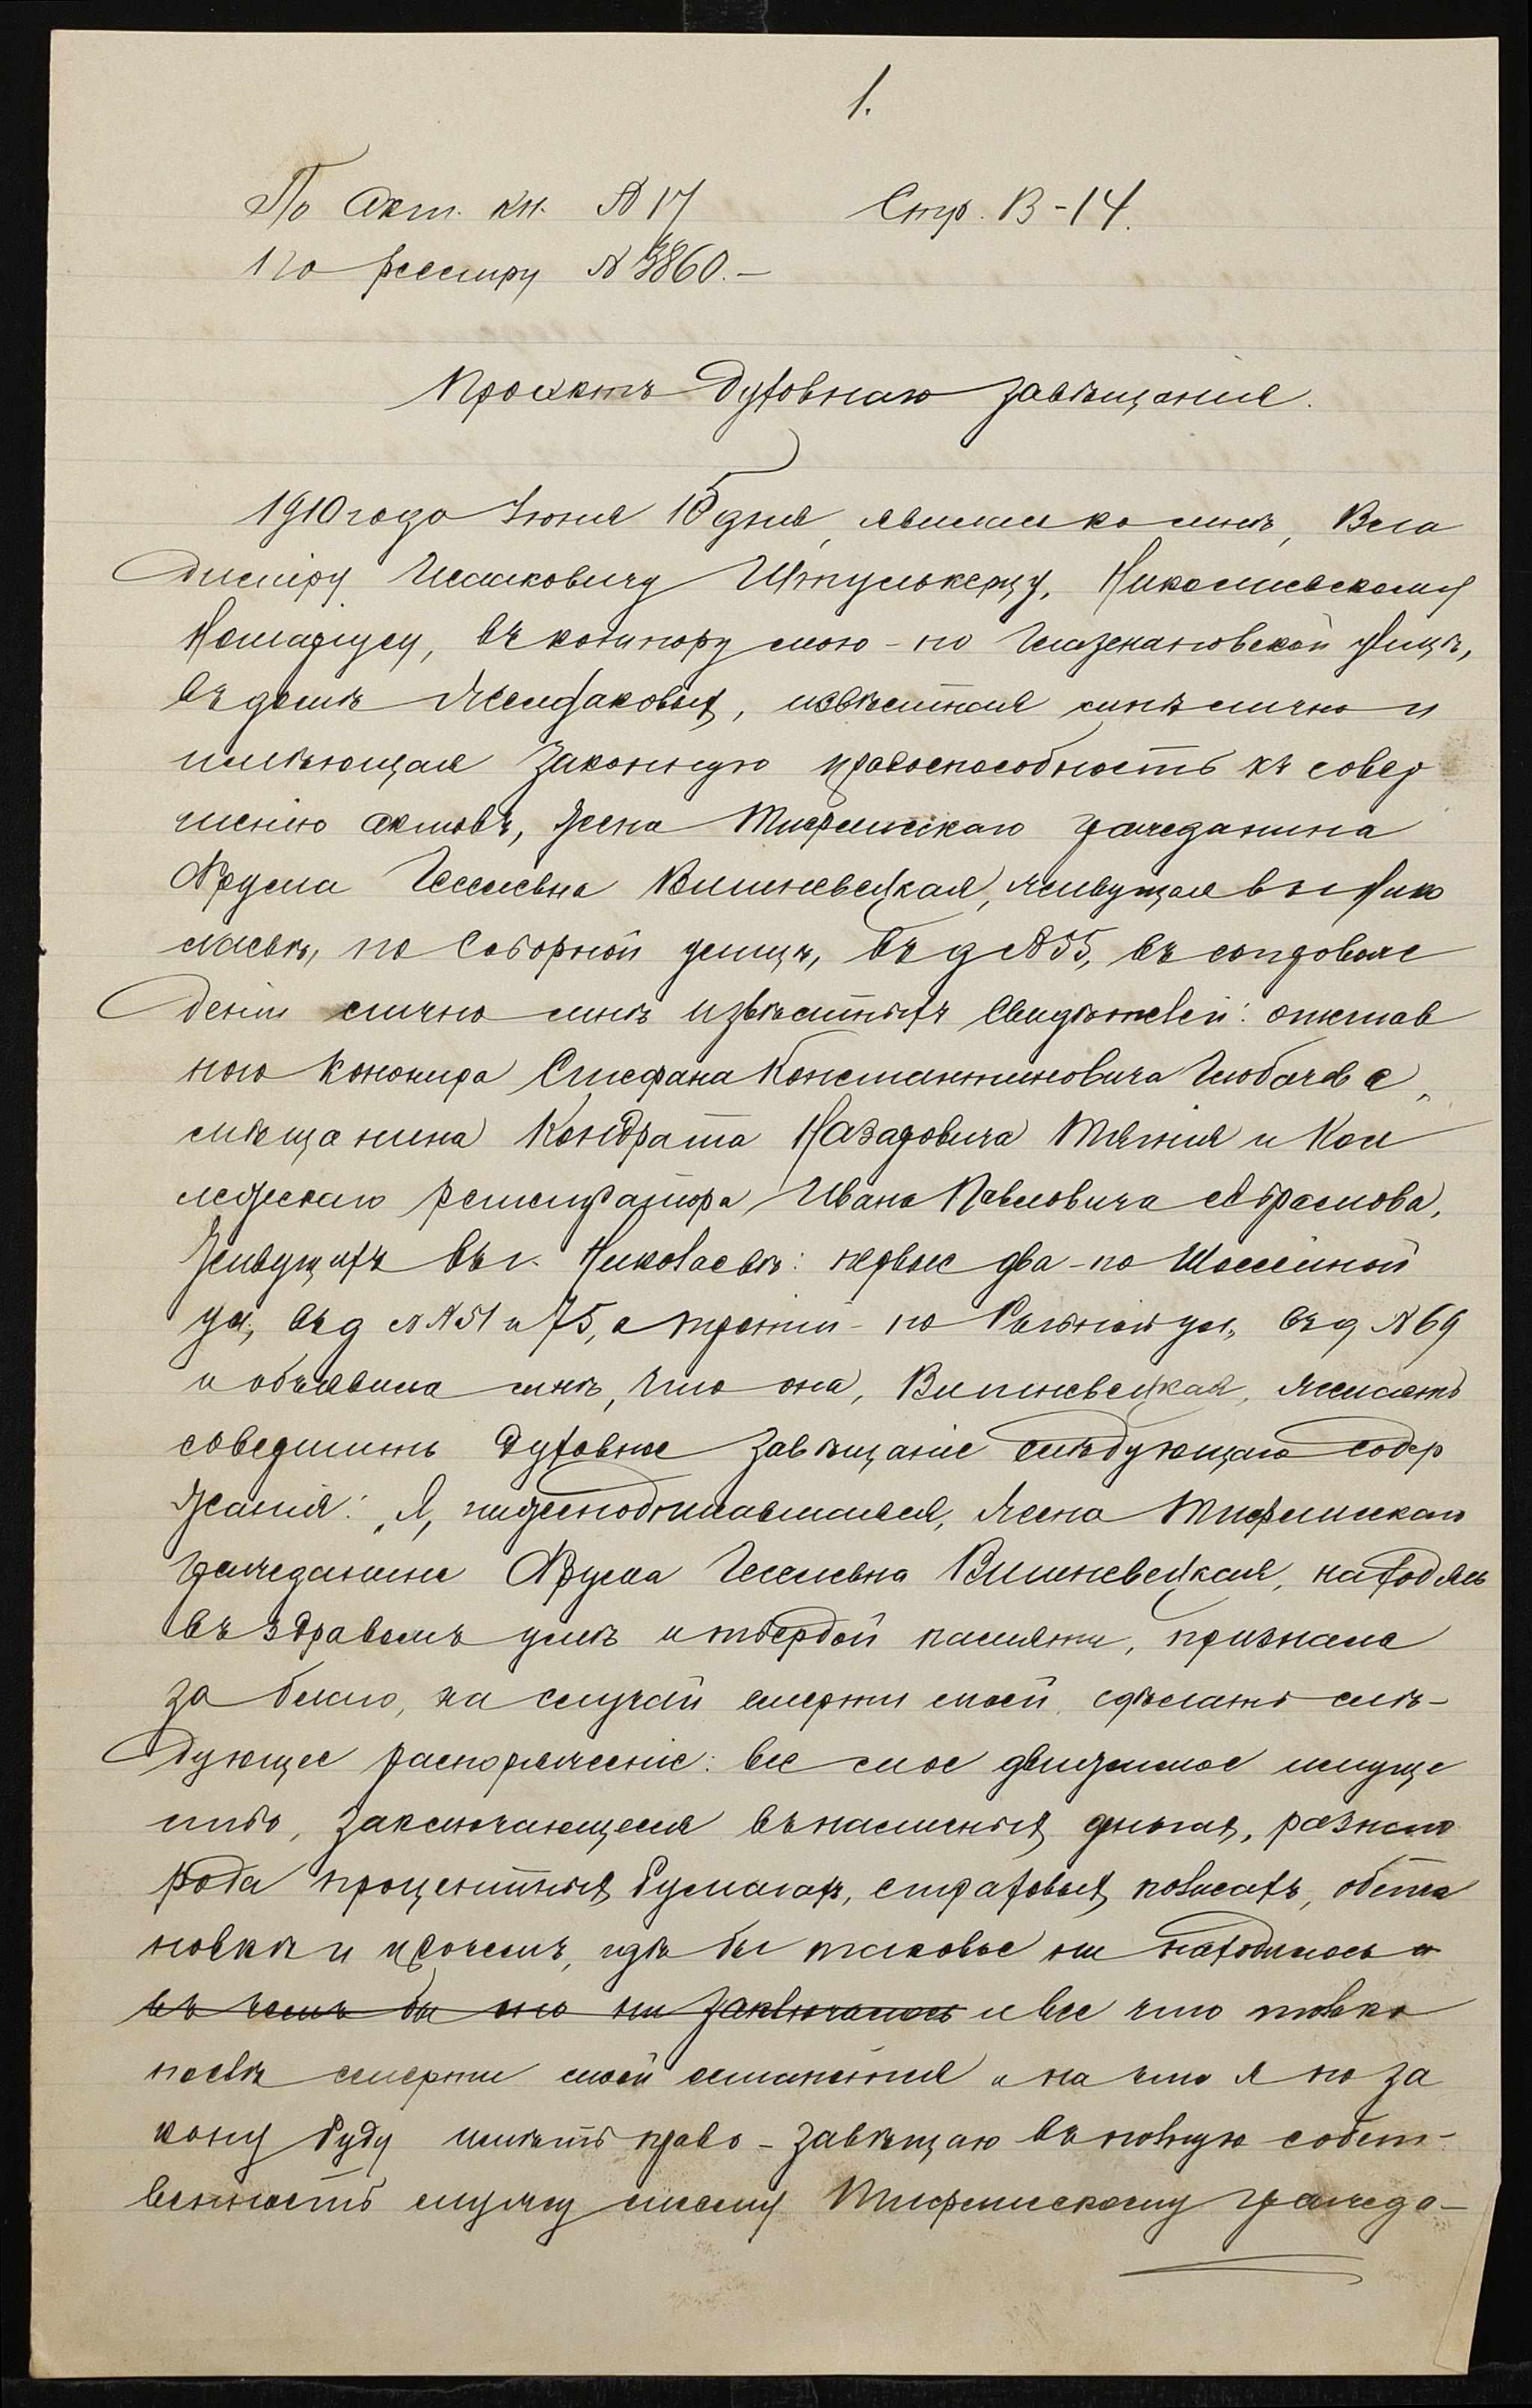 1.
По Акт. кн. № 17 Стр. 13-14.
По реестру № 3860.—
Проэктъ Духовнаго завѣщанія.
1910 года Іюня 15 дня, явилась ко мнѣ, Вла
диміру Исааковичу Штулькерцу, Николаевскому
Нотаріусу, въ контору мою - по Глазенаповской улицѣ,
въ домѣ, извѣстная мнѣ лично и
имѣющая законную правоспособность къ совер
шенію актовъ, жена Тифлисскаго гражданина
Фрума Іоселевна Вишневецкая, живущая въ г. Нико
лаевѣ, по Соборной улицѣ, въ д № 55, въ сопровож
деніи лично мнѣ извѣстныхъ свидѣтелей: отстав
ного канонира Стефана Константиновича,
мѣщанина Кондрата Назаровича Тягния и Кол
лежскаго регистратора Ивана Павловича Абрамова,
живущихъ въ г. Николаевѣ: первые два - по Шоссейной
ул., въ д №№ 51 и 75, а третій - по Рыбной ул., въ д № 69
и объявила мнѣ, что она, Вишневецкая, желаетъ
совершить духовное завѣщаніе слѣдующаго содер
жанія: „Я, нижеподписавшаяся, жена Тифлисскаго
гражданина Фрума Іоселевна Вишневецкая, находясь
въ здравомъ умѣ и твердой памяти, признала
за благо, на случай смерти моей, сдѣлать слѣ-
дующее распоряженіе: все мое движимое имуще
ство, заключающееся въ наличныхъ деньгахъ, разнаго
рода процентныхъ бумагахъ, страховыхъ полисахъ, обста
новкѣ и прочемъ, гдѣ бы таковое ни находилось и
въ чемъ бы оно ни заключалось и все что только
послѣ смерти моей останется и на что я по за
кону буду имѣть право - завѣщаю въ полную собст-
венность мужу моему Тифлисскому гражда-